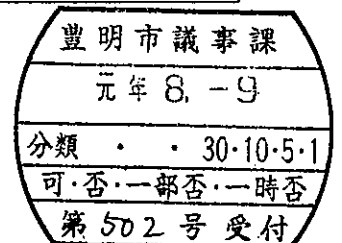 豊明市議事課
元年 8. -9
分類 ・ ・ 30・10・5・1
可・否・一部否・一時否
第 502 号 受付